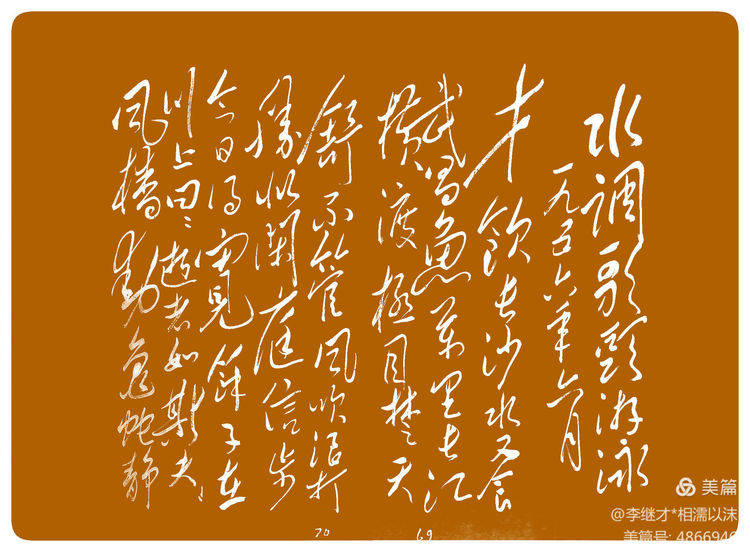 水调歌頭游泳
一九五六年六月
才饮长沙水又食
武昌魚萬里长江
横渡极目楚天
舒不管风吹浪打
勝似闲庭信步
今日得寬餘子在
川上曰：逝者如斯夫、
风樯動龟蛇静
70
69
美篇
@李继才*相濡以沫
美篇号: 4866946